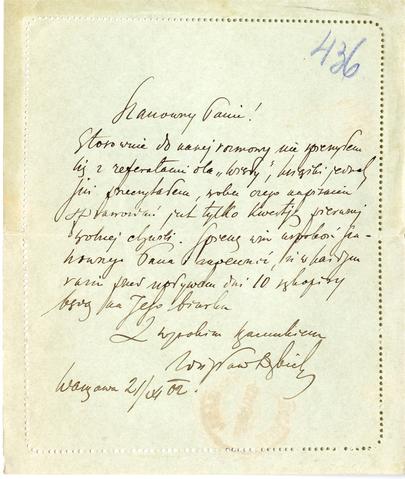 436
Szanowny Panie!
Stosownie do naszej rozmowy nie spieszyłem
się z referatami dla „Wisły”, książki jednak
już przeczytałem, wobec czego napisanie
sprawozdań jest tylko kwestyą pierwszej
wolnej chwili. Spieszę więc uspokoić Sza-
nownego Pana i zapewnić, że w każdym
razie przed upływem dni 10 rękopisy
będą na Jego biurku
Z wysokim szacunkiem
Warszawa 21/ 02.